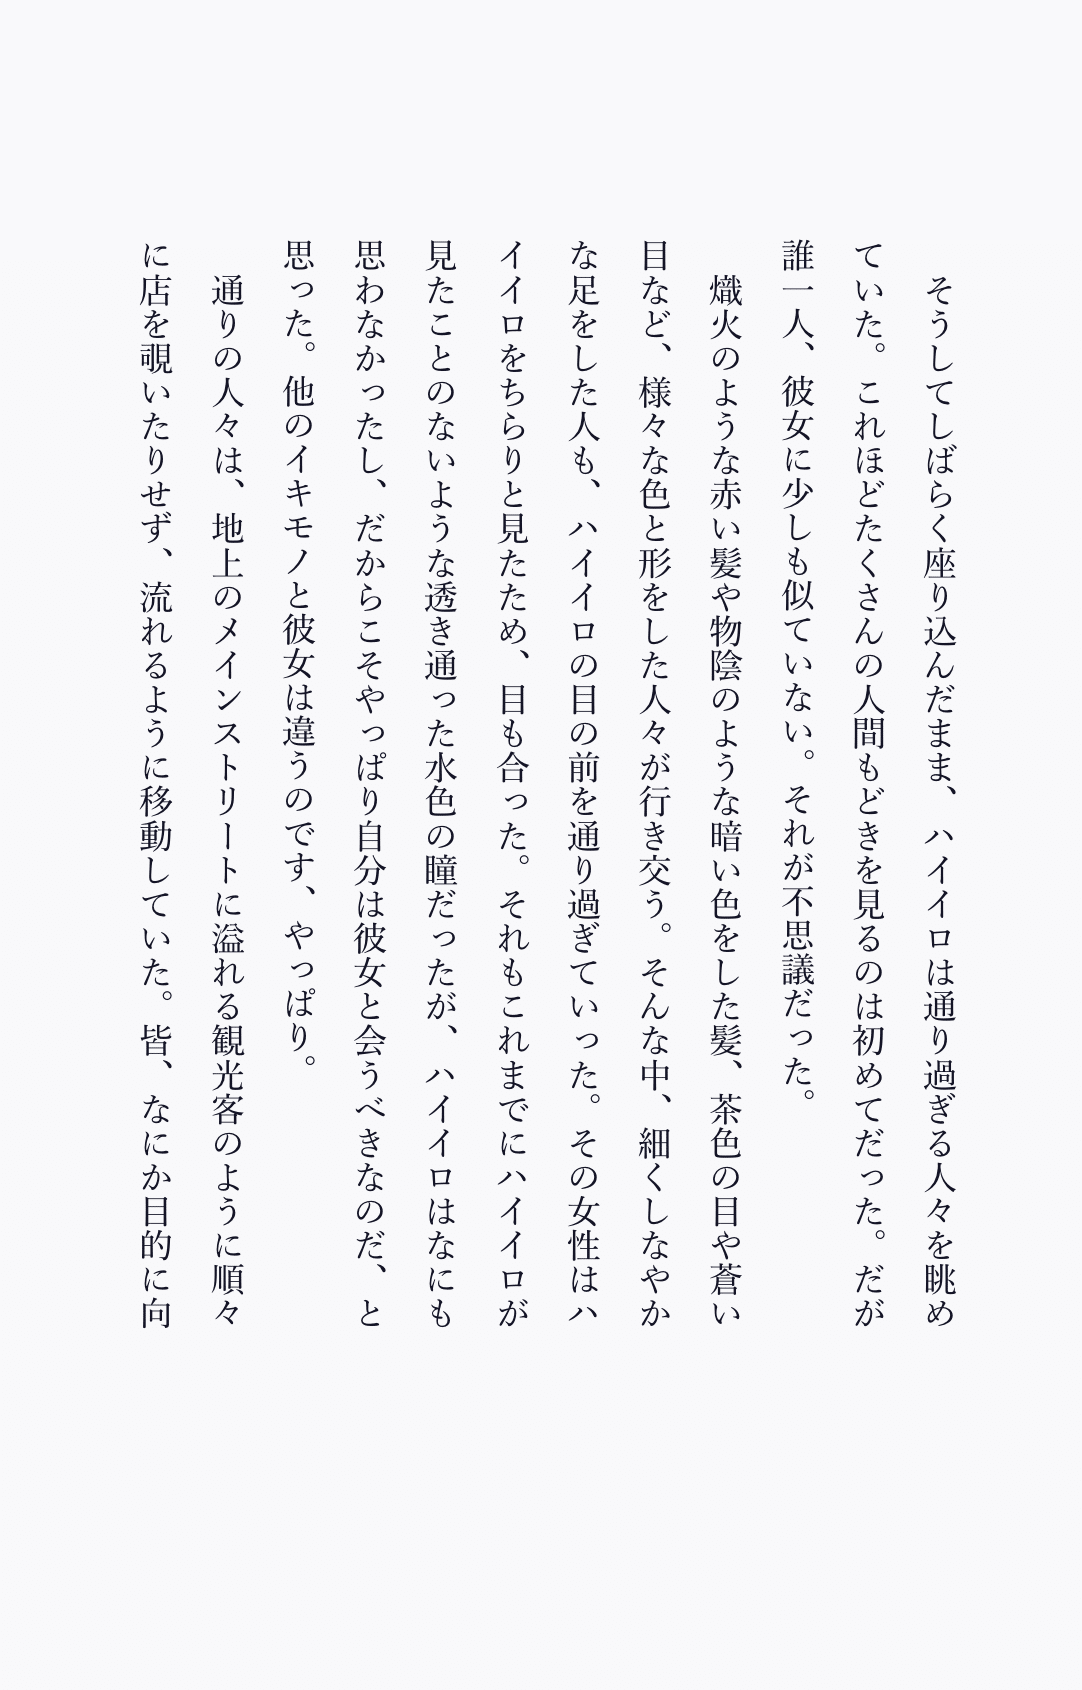 そうしてしばらく座り込んだまま、ハイイロは通り過ぎる人々を眺め
ていた。これほどたくさんの人間もどきを見るのは初めてだった。だが
誰一人、彼女に少しも似ていない。それが不思議だった。
　熾火のような赤い髪や物陰のような暗い色をした髪、茶色の目や蒼い
目など、様々な色と形をした人々が行き交う。そんな中、細くしなやか
な足をした人も、ハイイロの目の前を通り過ぎていった。その女性はハ
イイロをちらりと見たため、目も合った。それもこれまでにハイイロが
見たことのないような透き通った水色の瞳だったが、ハイイロはなにも
思わなかったし、だからこそやっぱり自分は彼女と会うべきなのだ、と
思った。他のイキモノと彼女は違うのです、やっぱり。
　通りの人々は、地上のメインストリートに溢れる観光客のように順々
に店を覗いたりせず、流れるように移動していた。皆、なにか目的に向